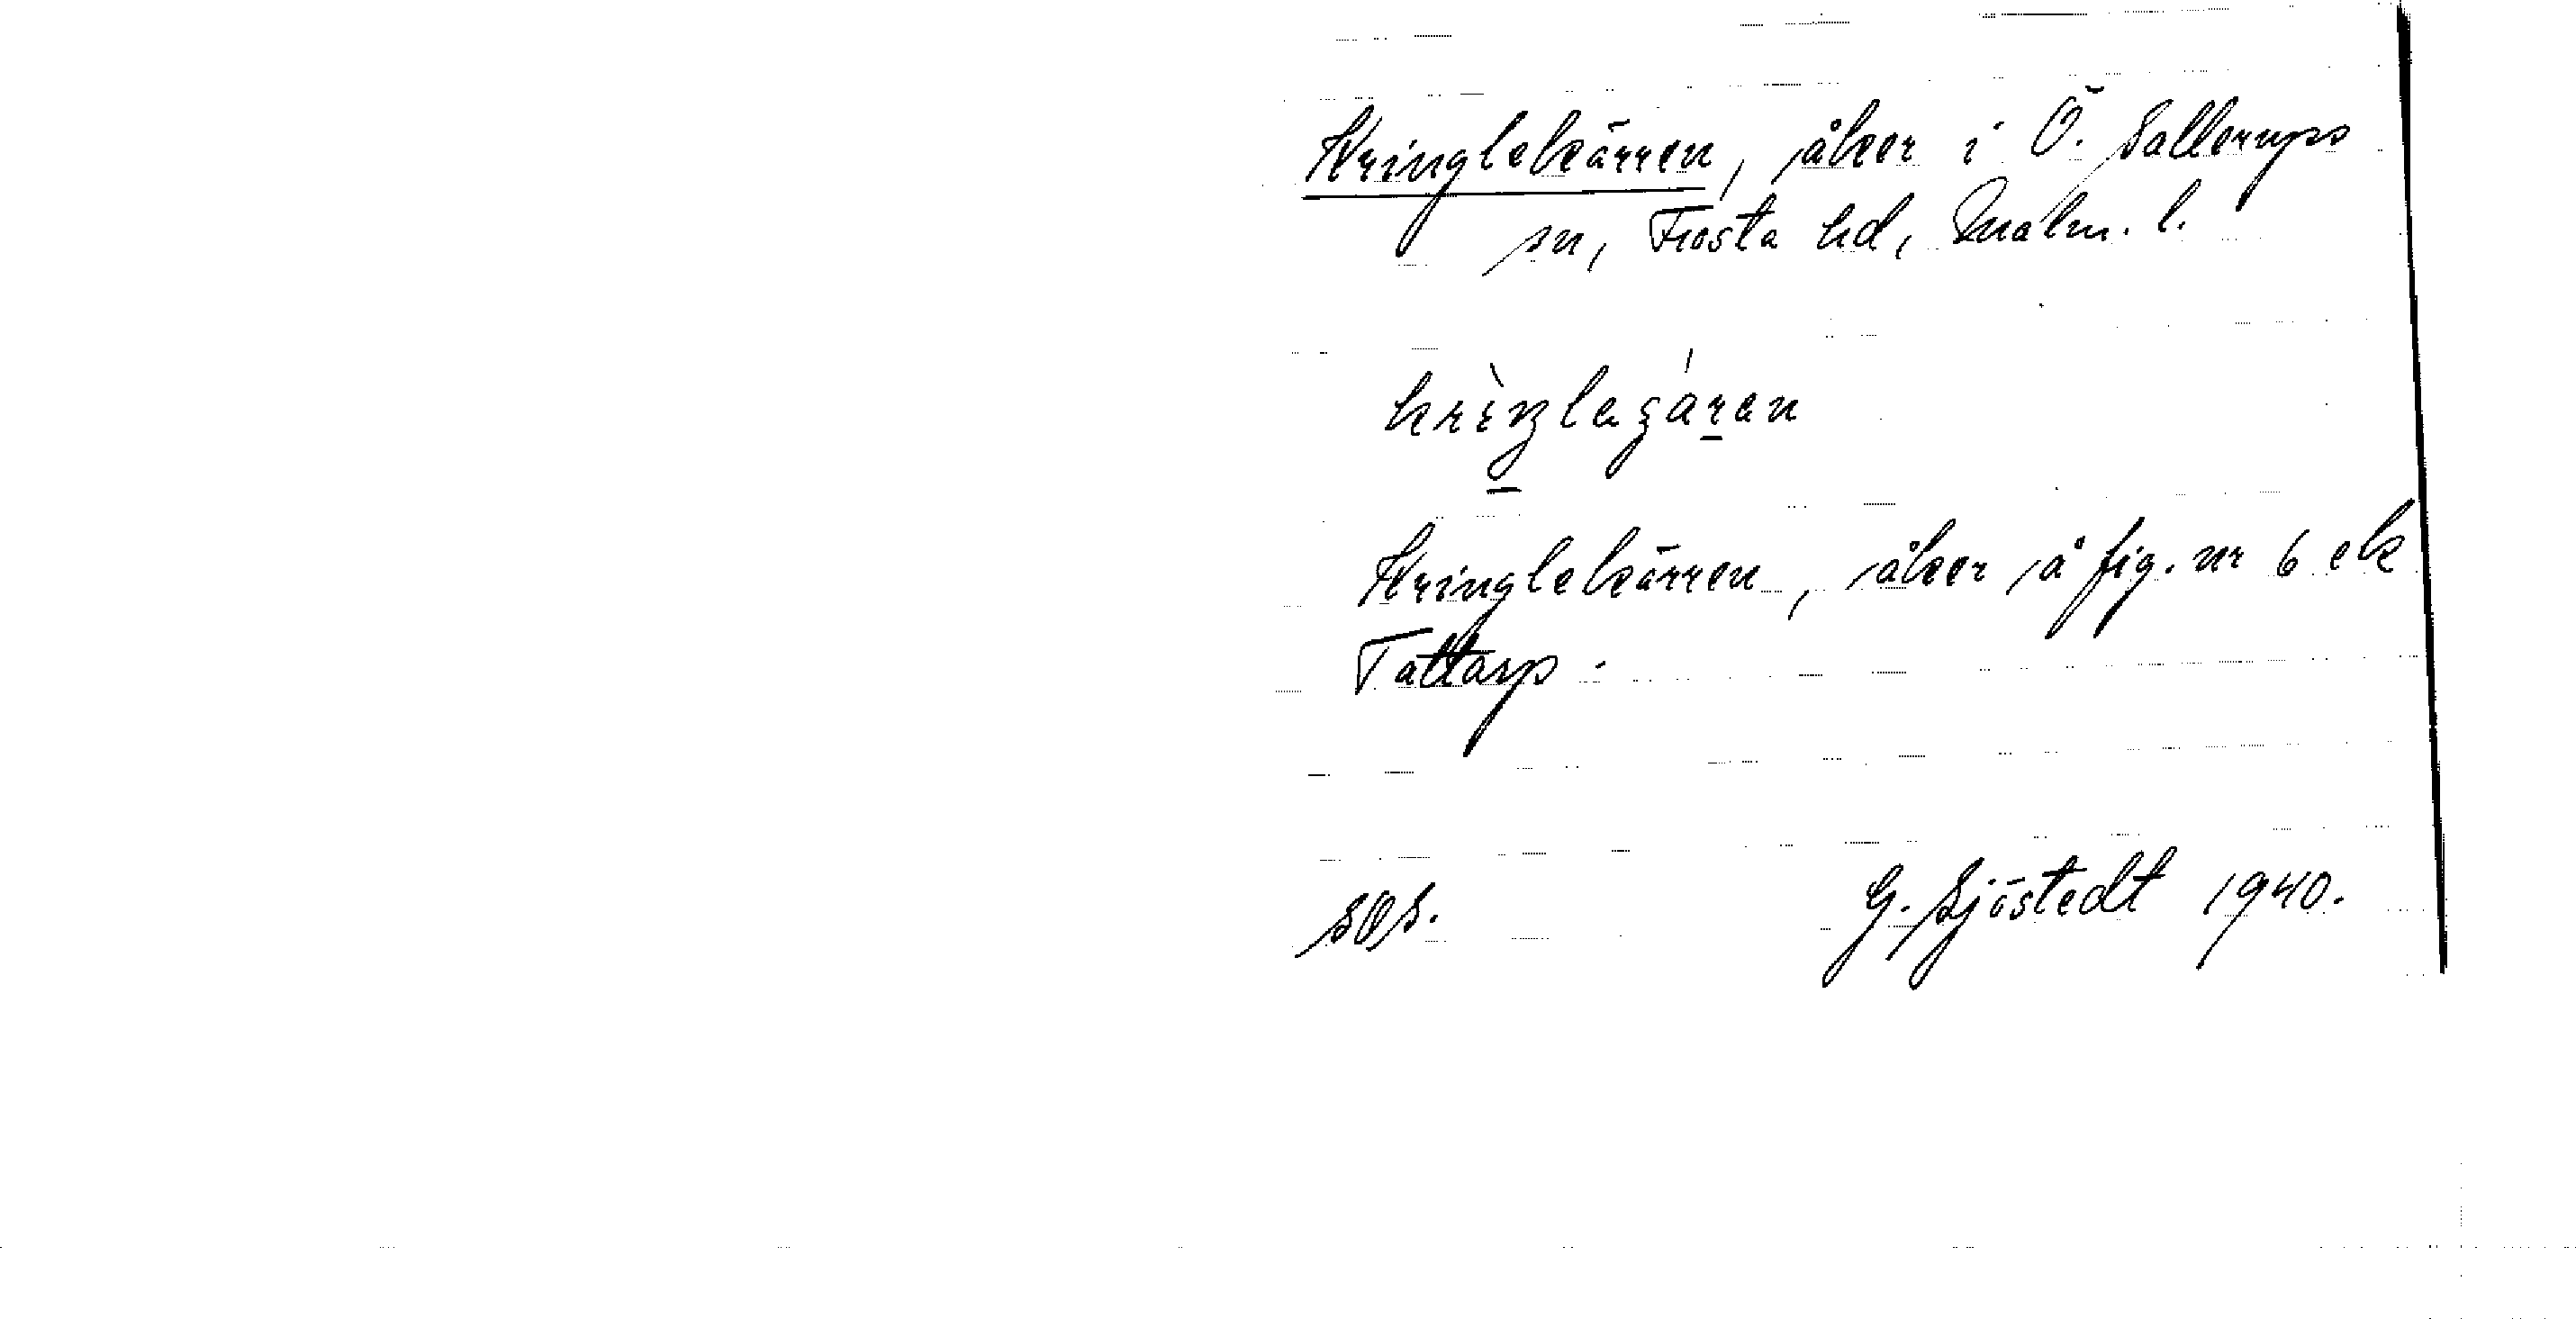 Kringlekärren, åker i Ö. Sallerups
sn, Frosta hd, Malm. l.
Kringlekärren, åker å fig. nr 6 ek
Tattarp.
G. Sjöstedt 1940.